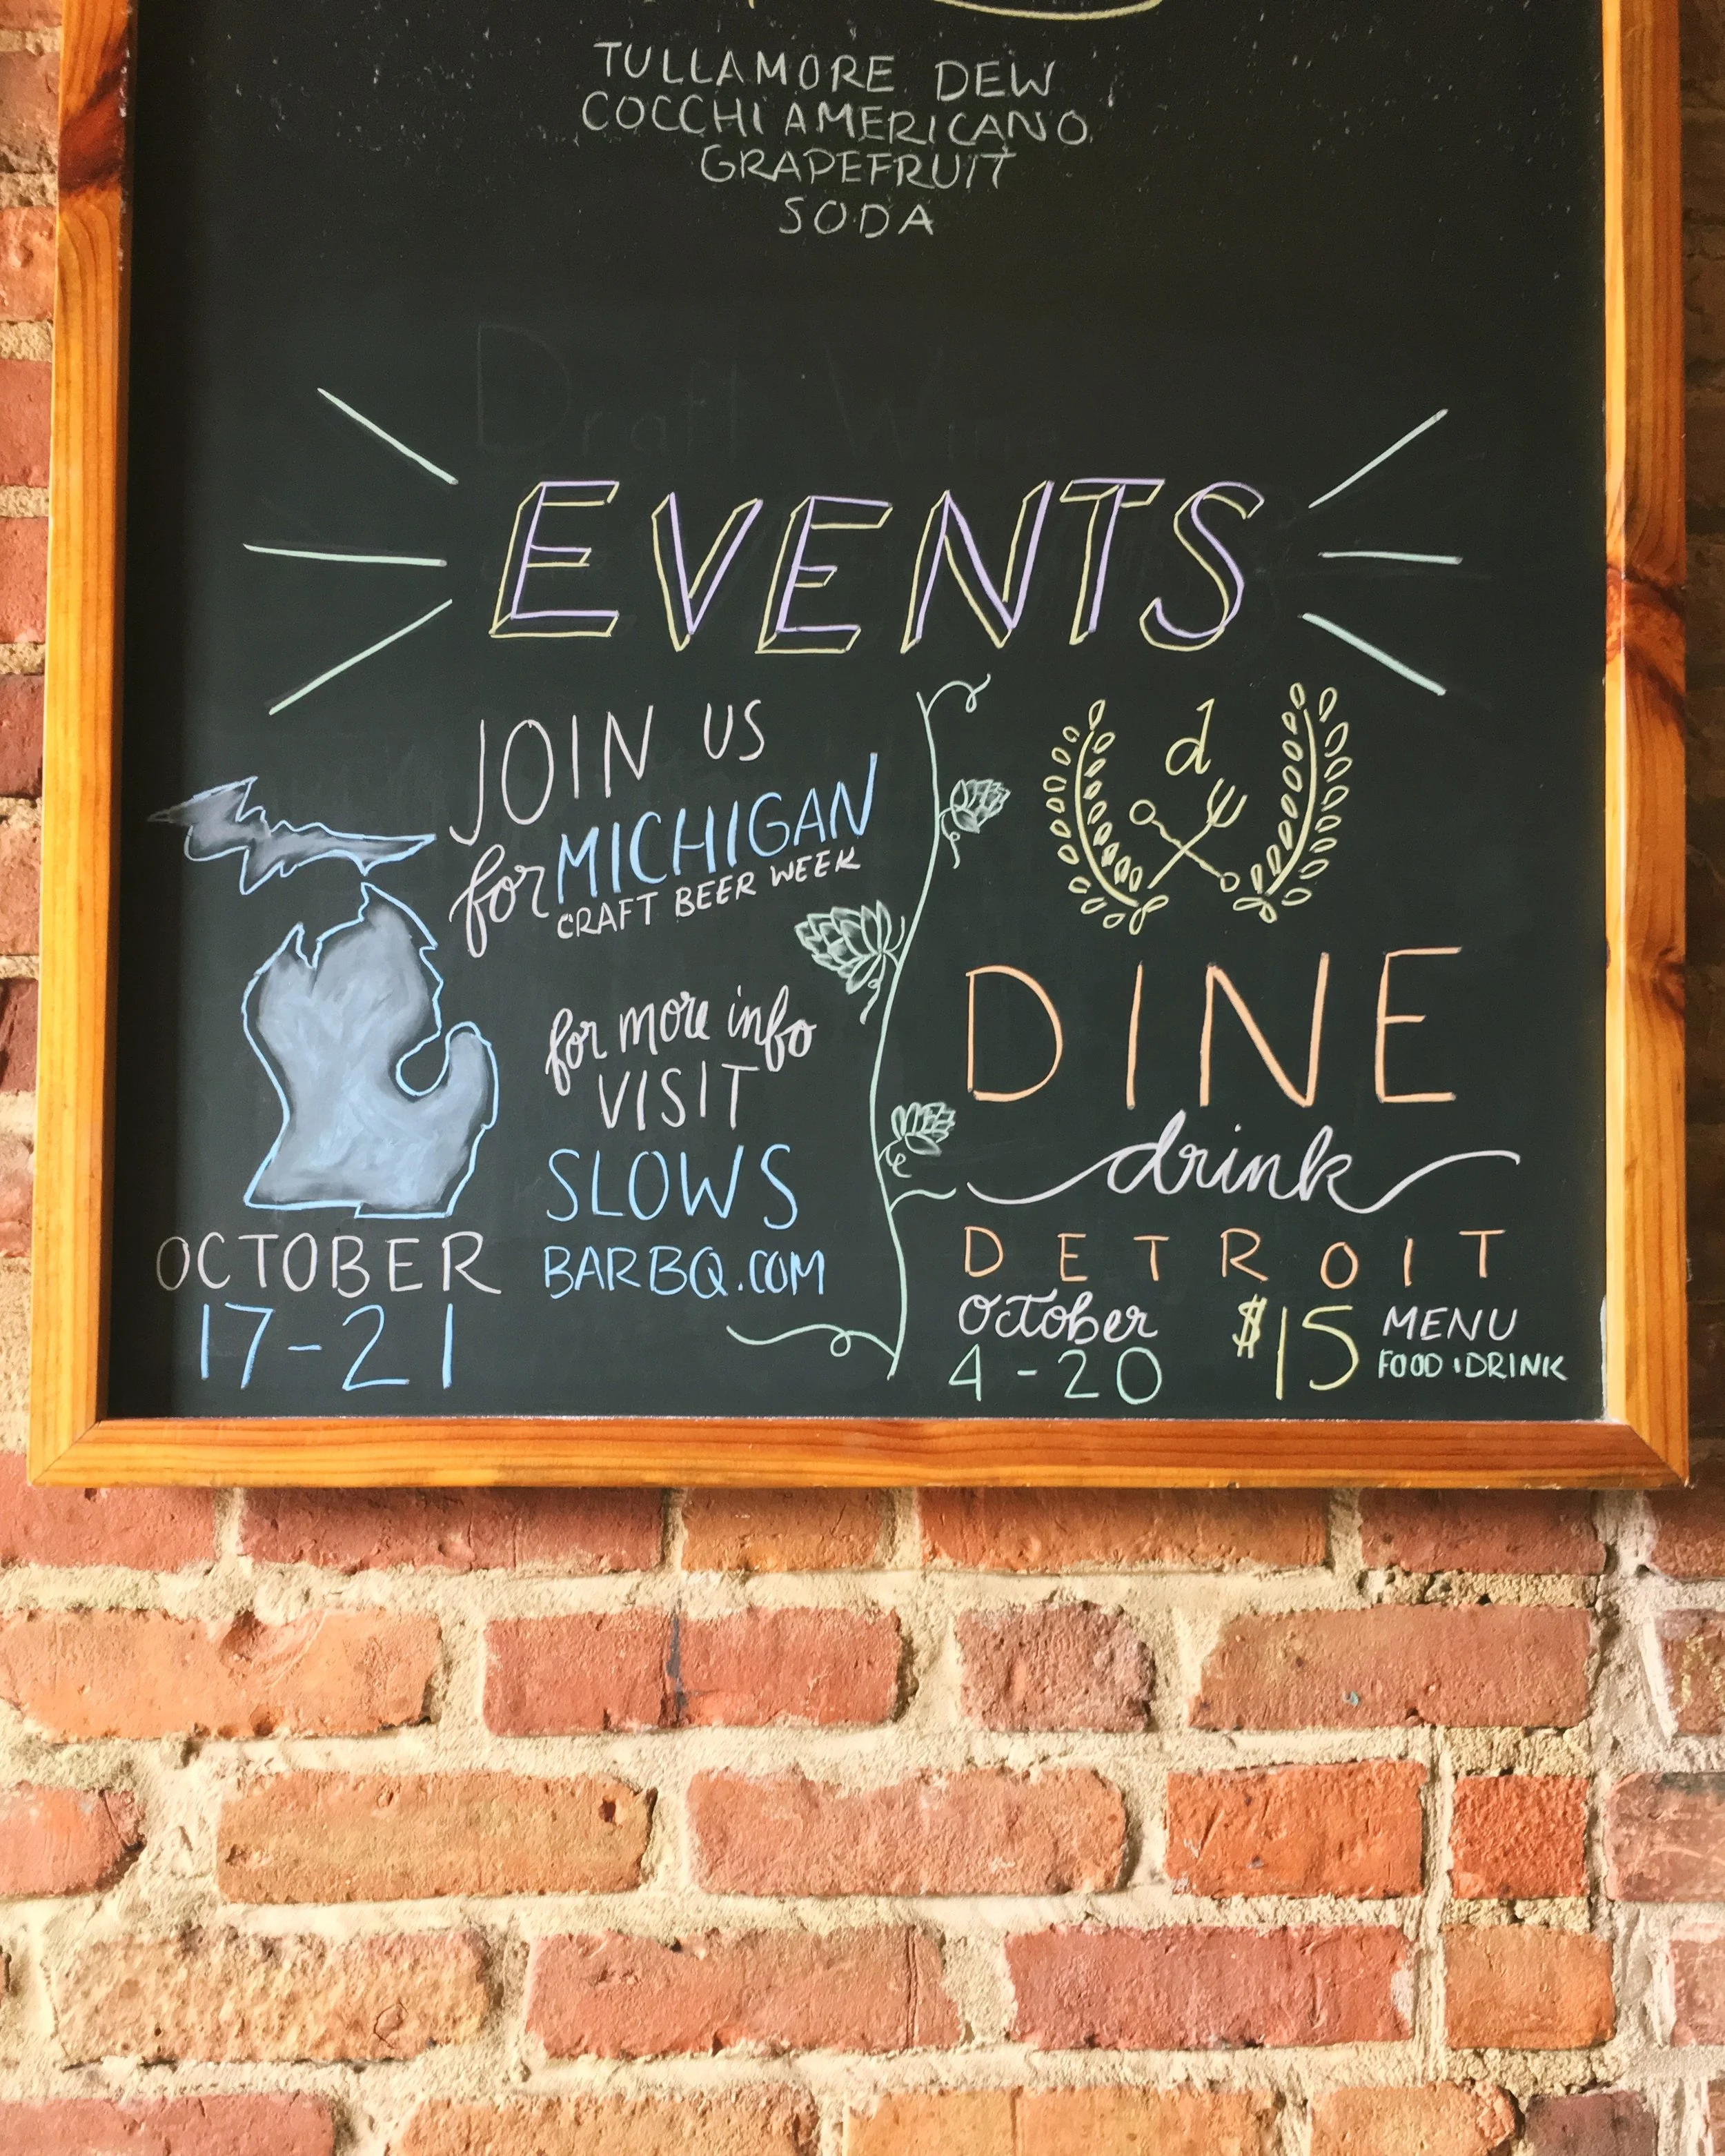 TULLAMORE DEW
COCCHI AMERICANO
GRAPEFRUIT
SODA
Draft Wine
EVENTS
JOIN US
for MICHIGAN
CRAFT BEER WEEK
for more info
VISIT
SLOWS
BARBQ.COM
OCTOBER
17-21
d
DINE
drink
DETROIT
October
4-20
$15 MENU
FOOD · DRINK